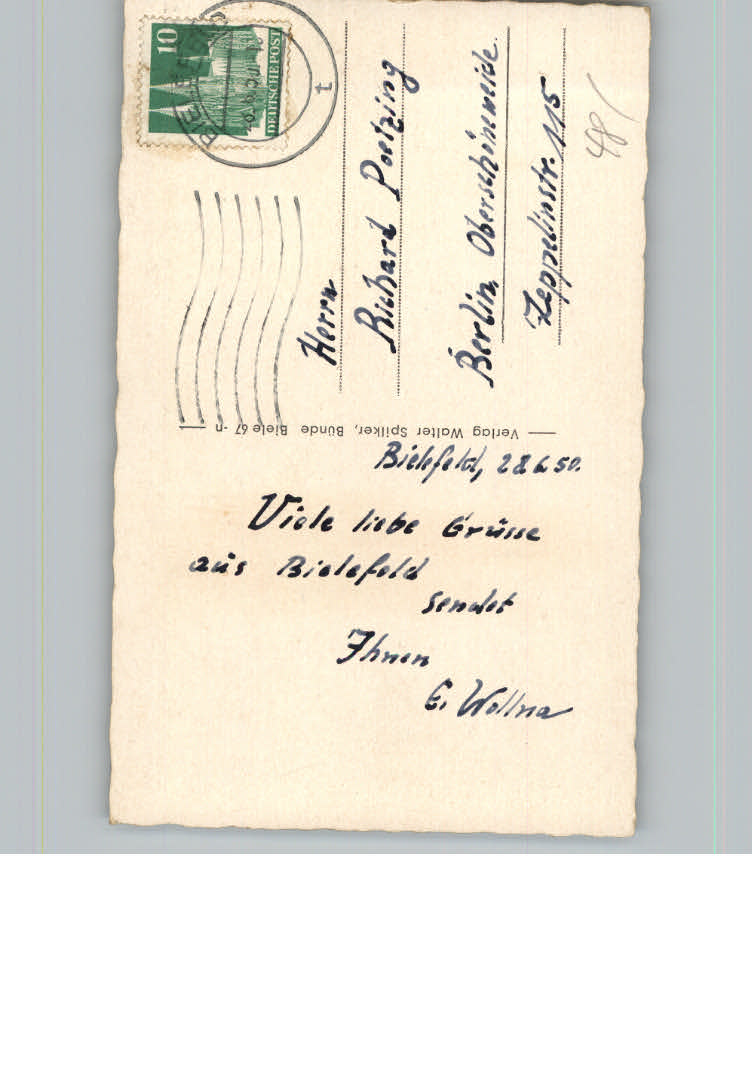 10
DEUTSCHE POST
t
Herrn
Richard Poetzing
Berlin Oberschöneweide.
Zeppelinstr. 115
48
Verlag Walter Spilker, Bünde Biele 67 - n
Bielefeld, 28.6.50.
Viele liebe Grüsse
aus Bielefeld
sendet
Ihnen
E. Wollna